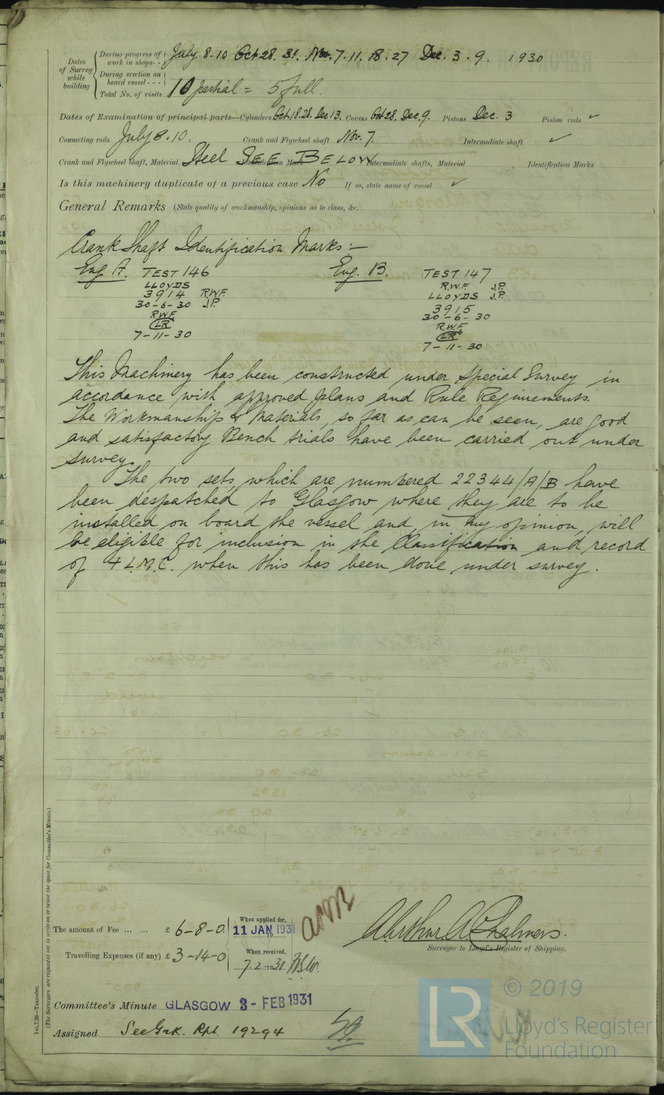 Dates of Survey while building
During progress of work in shops - - July. 8.10 Oct 28. 31. Nov. 7.11. 18.27 Dec. 3.9. 1930
During erection on board vessel - - -
Total No. of visits 10 partial = 5 full.
Dates of Examination of principal parts—Cylinders Oct. 18. 28. Dec 13. Covers Oct 28. Dec 9. Pistons Dec. 3 Piston rods ✓
Connecting rods July 8.10. Crank and Flywheel shaft Nov. 7. Intermediate shaft ✓
Crank and Flywheel shaft, Material Steel SEE BELOW Intermediate shafts, Material Identification Marks
Is this machinery duplicate of a previous case No If so, state name of vessel ✓
General Remarks (State quality of workmanship, opinions as to class, &c.
Crank Shaft Identification Marks:—
Eng. A. TEST 146 Eng. B. TEST 147
LLOYDS R.W.F. J.P.
3914 R.W.F. LLOYDS J.P.
30-6-30 J.P. 3915
R.W.F. 30-6-30
LR R.W.F.
7-11-30 LR
7-11-30
This Machinery has been constructed under Special Survey in
accordance with approved plans and Rule Requirements.
The Workmanship & Materials, so far as can be seen, are good
and satisfactory Bench trials have been carried out under
survey.
The two sets, which are numbered 22344/A/B have
been despatched to Glasgow where they are to be
installed on board the vessel and, in my opinion, will
be eligible for inclusion in the Classification and record
of + L.M.C. when this has been done under survey.
The amount of Fee ... ... £ 6-8-0 When applied for, 11 JAN 1931
Travelling Expenses (if any) £ 3-14-0 When received, 7.2.1931
Arthur A Chalmers.
Surveyor to Lloyd's Register of Shipping.
Committee's Minute GLASGOW 3 - FEB 1931
Assigned See Glk. Rpt. 19294
(The Surveyors are requested not to write on or below the space for Committee's Minute.)
© 2019
LR
Lloyd's Register
Foundation